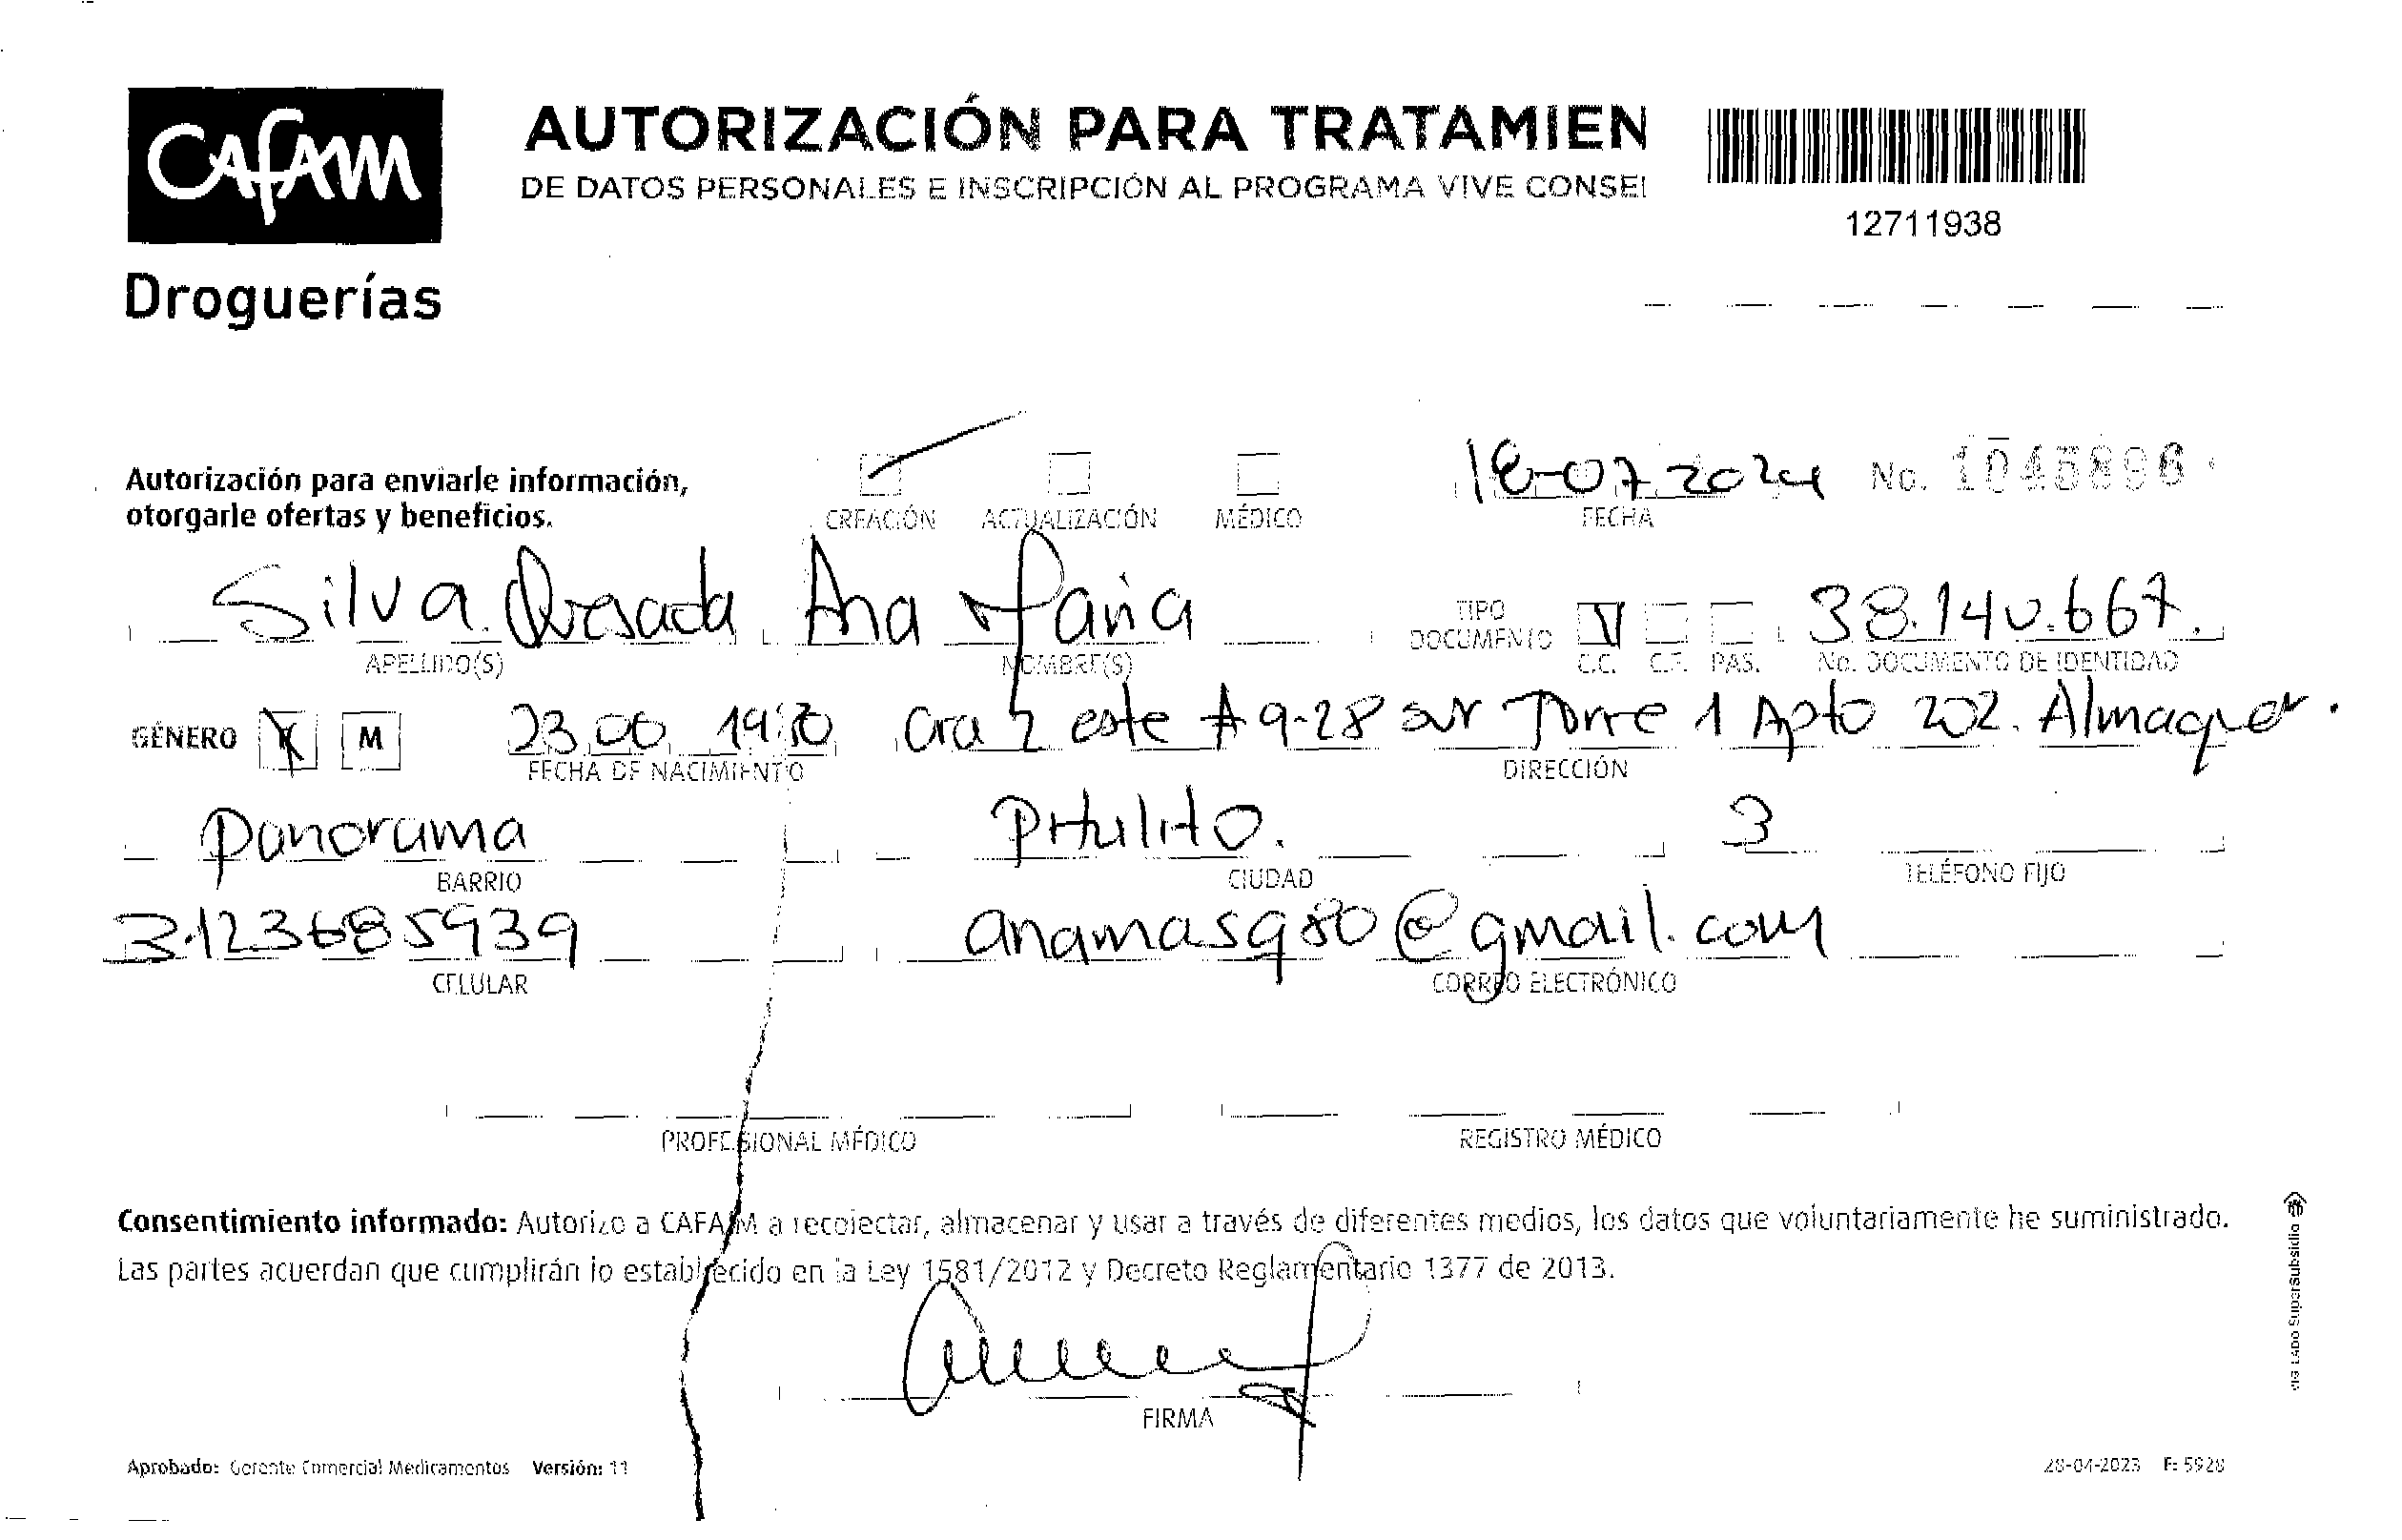 CAFAM
Droguerías
AUTORIZACIÓN PARA TRATAMIEN
DE DATOS PERSONALES E INSCRIPCIÓN AL PROGRAMA VIVE CONSEI
12711938
Autorización para enviarle información,
otorgarle ofertas y beneficios.
CREACIÓN ACTUALIZACIÓN MÉDICO
18-07-2024 No. 1045896
FECHA
Silva Quesada Ana Maria
APELLIDO(S) NOMBRE(S)
TIPO DOCUMENTO C.C. C.E. PAS. 38.140.667.
No. DOCUMENTO DE IDENTIDAD
GÉNERO M 23 06 Cra 2 este # 9-28 sur Torre 1 Apto 202. Almaquer.
FECHA DE NACIMIENTO DIRECCIÓN
Panorama Pitalito. 3
BARRIO CIUDAD TELÉFONO FIJO
3123685939 anamasq80@gmail.com
CELULAR CORREO ELECTRÓNICO
PROFESIONAL MÉDICO REGISTRO MÉDICO
Consentimiento informado: Autorizo a CAFAM a recolectar, almacenar y usar a través de diferentes medios, los datos que voluntariamente he suministrado.
Las partes acuerdan que cumplirán lo establecido en la Ley 1581/2012 y Decreto Reglamentario 1377 de 2013.
FIRMA
Aprobado: Gerente Comercial Medicamentos Versión: 11
28-04-2023 F: 5928
SuperSubsidio